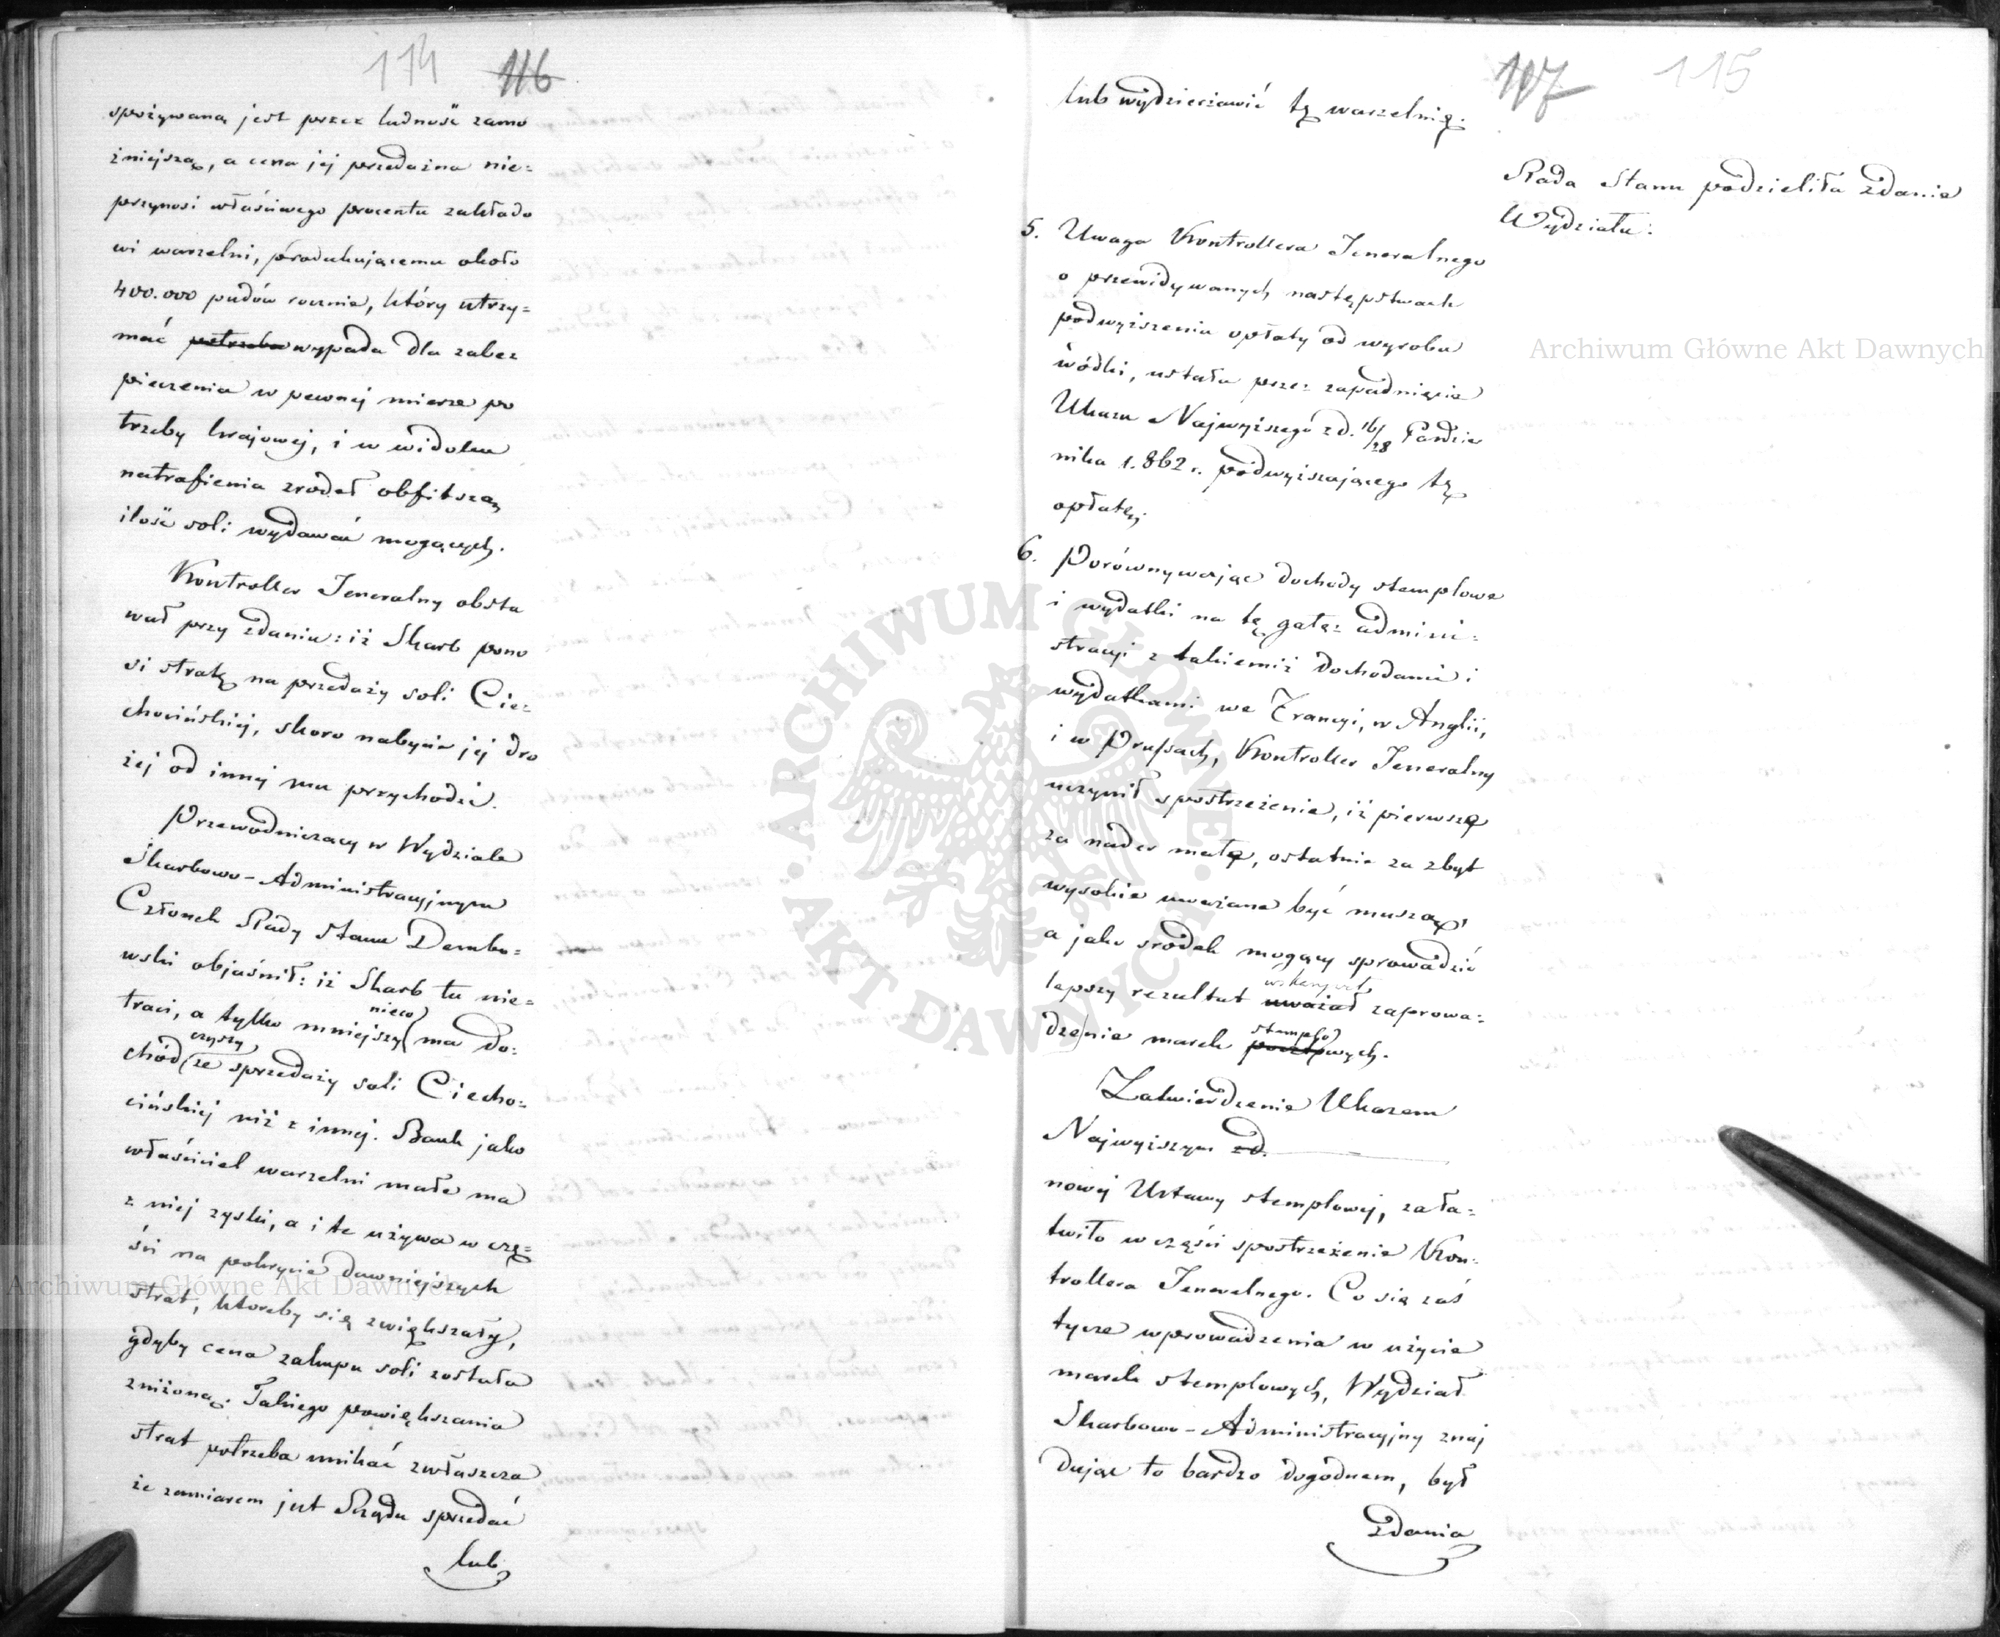 114 116
spożywaną jest przez ludność zamo
żniejszą, a cena jej przedażna nie=
przynosi właściwego procentu zakłado
wi warzelni, produkującemu około
400.000 pudów rocznie, który utrzy=
mać potrzeba wypada dla zabez
pieczenia w pewnej mierze po
trzeby krajowej, i w widoku
natrafienia zrodeł obfitszą
ilość soli wydawać mogących.
Kontroller Jeneralny obsta
wał przy zdaniu: iż Skarb pono
si stratę na przedaży soli Cie=
chocińskiej, skoro nabycie jej dro
żej od innej mu przychodzi.
Przewodniczący w Wydziale
Skarbowo-Administracyjnym
Członek Rady Stanu Dembo=
wski objaśnił: iż Skarb tu nie=
traci, a tylko mniejszy nieco ma do=
chód czysty ze sprzedaży soli Ciecho=
cińskiej niż z innej. Bank jako
właściciel warzelni małe ma
z niej zyski, a i te używa w czę=
ści na pokrycie dawniejszych
strat, któreby się zwiększały,
gdyby cena zakupu soli została
zniżoną. Takiego powiększania
strat potrzeba unikać zwłaszcza
że zamiarem jest Rządu sprzedać
lub
117 115
lub wydzierżawić tę warzelnię.
Rada Stanu podzieliła zdanie
Wydziału.
5. Uwaga Kontrollera Jeneralnego
o przewidywanych następstwach
podwyższenia opłaty od wyrobu
wódki, ustała przez zapadnięcie
Ukazu Najwyższego z d. 16/28 Paździe
nika 1.862 r. podwyższającego tę
opłatę.
6. Porównywając dochody stemplowe
i wydatki na tę gałęz admini=
stracyi z takiemiż dochodami i
wydatkami we Francyi, w Anglii,
i w Prusach, Kontroller Jeneralny
uczynił spostrzeżenie, iż pierwsze
za nader małe, ostatnie za zbyt
wysokie uważane być muszą,
a jako srodek mogący sprowadzić
lepszy rezultat uważał wskazywał zaprowa=
dzenie marek poczto stemplowych.
Zatwierdzenie Ukazem
Najwyższym z d.
nowej Ustawy stemplowej, zała=
twiło w części spostrzeżenie Kon=
trollera Jeneralnego. Co się zaś
tycze wprowadzenia w użycie
marek stemplowych, Wydział
Skarbowo-Administracyjny znaj
dując to bardzo dogodnem, był
zdania
Archiwum Główne Akt Dawnych
Archiwum Główne Akt Dawnych
ARCHIWUM GŁÓWNE AKT DAWNYCH